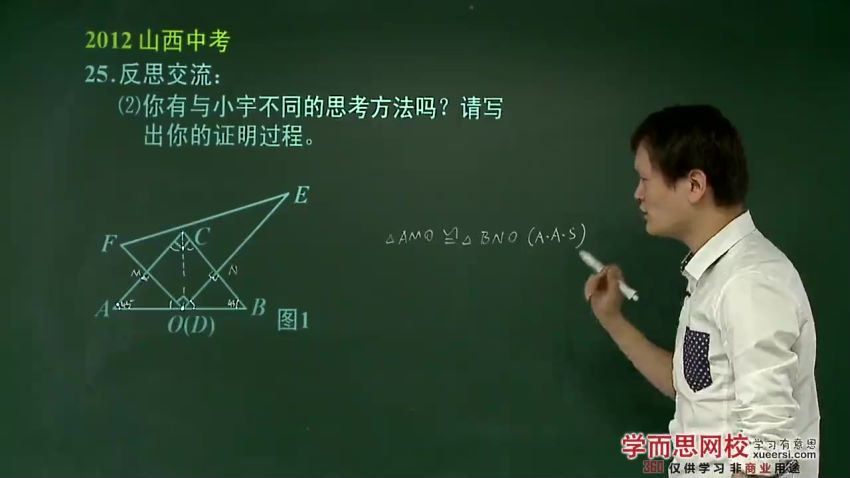 2012 山西中考
25.反思交流:
⑵你有与小宇不同的思考方法吗?请写
出你的证明过程。
E
F
C
M
N
A
45°
45°
B
O(D)
图1
△AMO ≌ △BNO (A.A.S)
学而思网校
学习有意思
xueersi.com
360 仅供学习 非商业用途